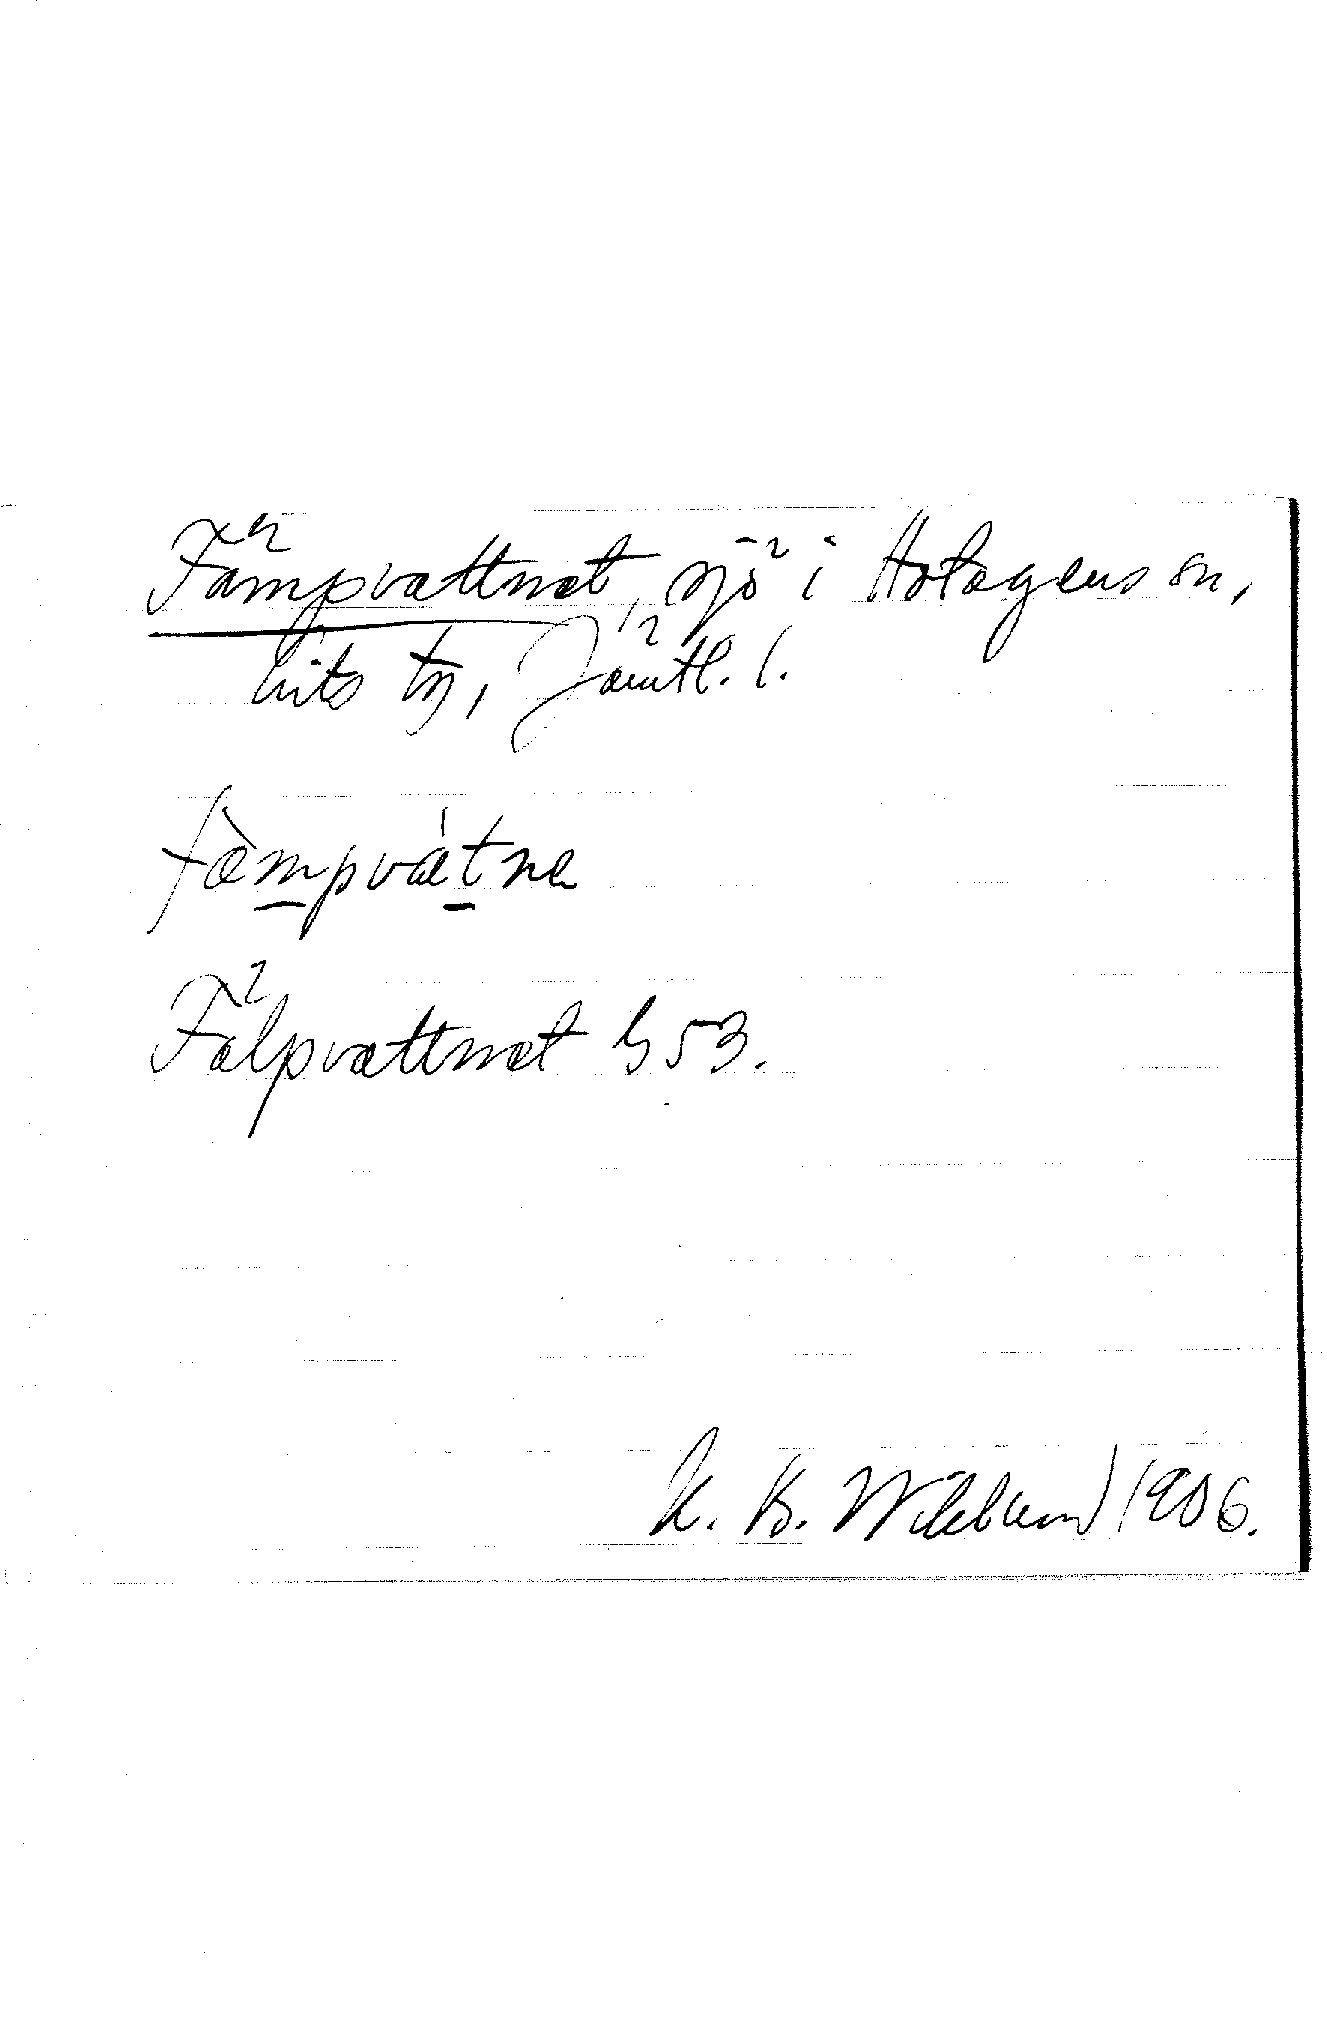 Fämpvattnet, sjö i Hotagens sn,
Lits tg, Jämtl. l.
fæ̀mpvátne
Fälpvattnet G 53.
K. B. Wiklund 1906.